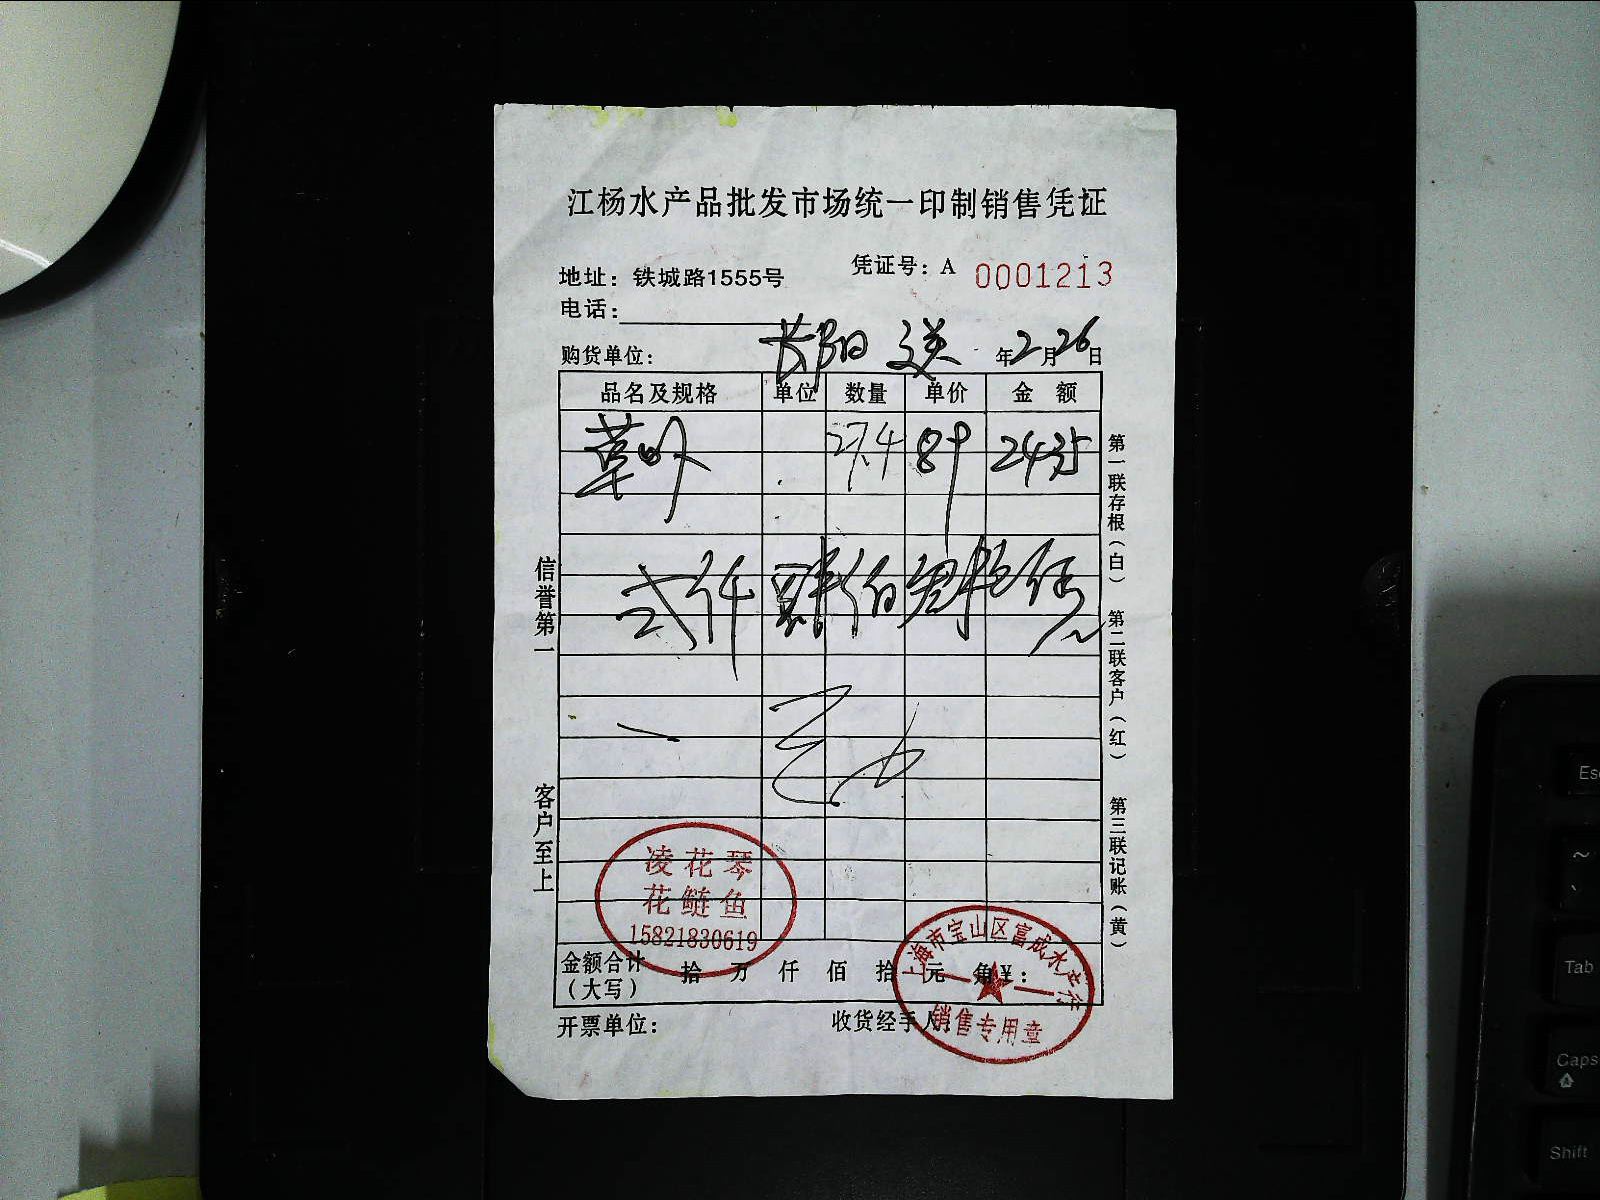 江杨水产品批发市场统一印制销售凭证
凭证号：A 0001213
地址：铁城路1555号
电话：
购货单位： 长阳 送 年2月26日
品名及规格 单位 数量 单价 金额
草 27.4 89 2435
弍仟肆佰叁拾伍
信誉第一
客户至上
第一联存根（白） 第二联客户（红） 第三联记账（黄）
凌花琴
花鲢鱼
15821830619
金额合计（大写） 拾 万 仟 佰 拾 元 角￥：
上海市宝山区富成水产行
销售专用章
开票单位： 收货经手人：
Esc
~
Tab
Caps
A
Shift